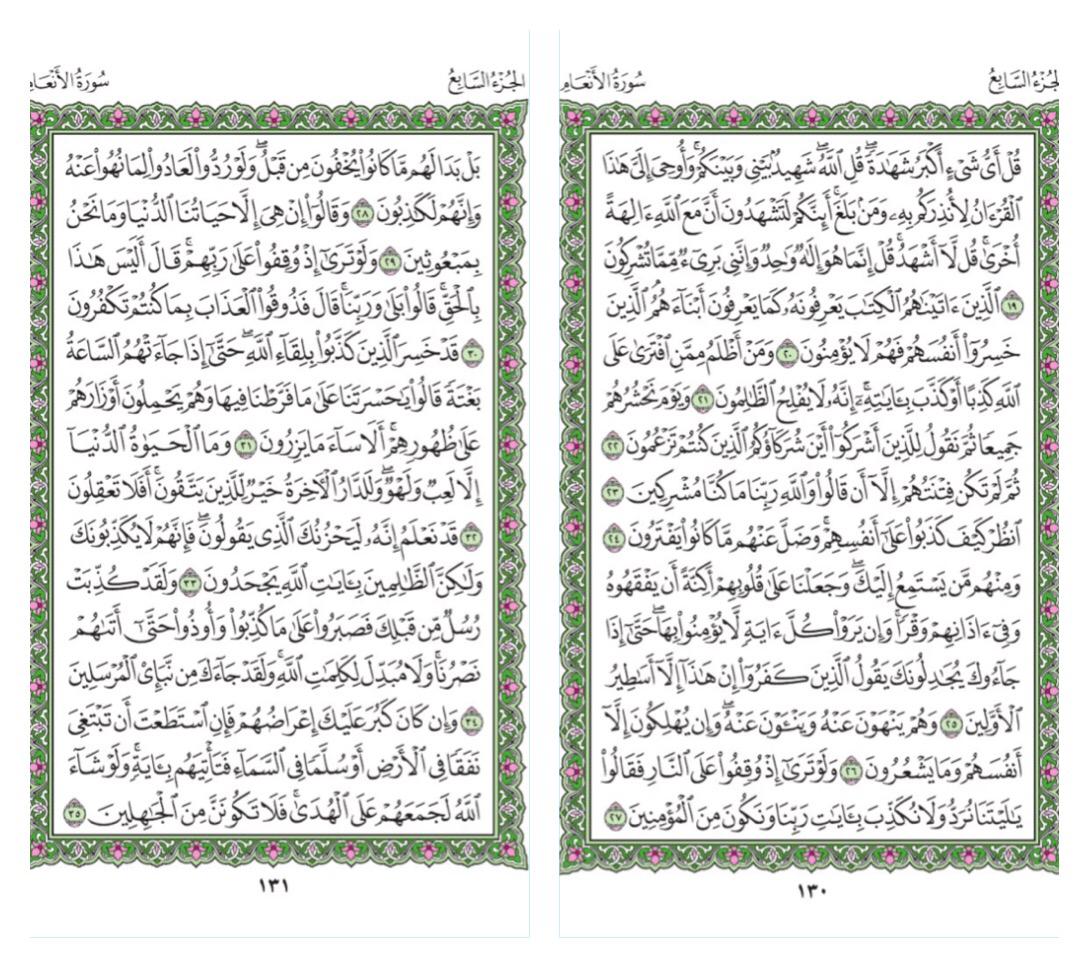 الجُزْءُ السَّابِعُ
سُورَةُ الأَنْعَامِ
قُلْ أَىُّ شَىْءٍ أَكْبَرُ شَهَٰدَةً ۖ قُلِ ٱللَّهُ ۖ شَهِيدٌۢ بَيْنِى وَبَيْنَكُمْ ۚ وَأُوحِىَ إِلَىَّ هَٰذَا
ٱلْقُرْءَانُ لِأُنذِرَكُم بِهِۦ وَمَنۢ بَلَغَ ۚ أَئِنَّكُمْ لَتَشْهَدُونَ أَنَّ مَعَ ٱللَّهِ ءَالِهَةً
أُخْرَىٰ ۚ قُل لَّآ أَشْهَدُ ۚ قُلْ إِنَّمَا هُوَ إِلَٰهٌ وَٰحِدٌ وَإِنَّنِى بَرِىٓءٌ مِّمَّا تُشْرِكُونَ
١٩ ٱلَّذِينَ ءَاتَيْنَٰهُمُ ٱلْكِتَٰبَ يَعْرِفُونَهُۥ كَمَا يَعْرِفُونَ أَبْنَآءَهُمُ ٱلَّذِينَ
خَسِرُوٓا۟ أَنفُسَهُمْ فَهُمْ لَا يُؤْمِنُونَ ٢٠ وَمَنْ أَظْلَمُ مِمَّنِ ٱفْتَرَىٰ عَلَى
ٱللَّهِ كَذِبًا أَوْ كَذَّبَ بِـَٔايَٰتِهِۦٓ ۗ إِنَّهُۥ لَا يُفْلِحُ ٱلظَّٰلِمُونَ ٢١ وَيَوْمَ نَحْشُرُهُمْ
جَمِيعًا ثُمَّ نَقُولُ لِلَّذِينَ أَشْرَكُوٓا۟ أَيْنَ شُرَكَآؤُكُمُ ٱلَّذِينَ كُنتُمْ تَزْعُمُونَ ٢٢
ثُمَّ لَمْ تَكُن فِتْنَتُهُمْ إِلَّآ أَن قَالُوا۟ وَٱللَّهِ رَبِّنَا مَا كُنَّا مُشْرِكِينَ ٢٣
ٱنظُرْ كَيْفَ كَذَبُوا۟ عَلَىٰٓ أَنفُسِهِمْ ۚ وَضَلَّ عَنْهُم مَّا كَانُوا۟ يَفْتَرُونَ ٢٤
وَمِنْهُم مَّن يَسْتَمِعُ إِلَيْكَ ۖ وَجَعَلْنَا عَلَىٰ قُلُوبِهِمْ أَكِنَّةً أَن يَفْقَهُوهُ
وَفِىٓ ءَاذَانِهِمْ وَقْرًا ۚ وَإِن يَرَوْا۟ كُلَّ ءَايَةٍ لَّا يُؤْمِنُوا۟ بِهَا ۖ حَتَّىٰٓ إِذَا
جَآءُوكَ يُجَٰدِلُونَكَ يَقُولُ ٱلَّذِينَ كَفَرُوٓا۟ إِنْ هَٰذَآ إِلَّآ أَسَٰطِيرُ
ٱلْأَوَّلِينَ ٢٥ وَهُمْ يَنْهَوْنَ عَنْهُ وَيَنْـَٔوْنَ عَنْهُ ۖ وَإِن يُهْلِكُونَ إِلَّآ
أَنفُسَهُمْ وَمَا يَشْعُرُونَ ٢٦ وَلَوْ تَرَىٰٓ إِذْ وُقِفُوا۟ عَلَى ٱلنَّارِ فَقَالُوا۟
يَٰلَيْتَنَا نُرَدُّ وَلَا نُكَذِّبَ بِـَٔايَٰتِ رَبِّنَا وَنَكُونَ مِنَ ٱلْمُؤْمِنِينَ ٢٧
١٣٠
الجُزْءُ السَّابِعُ
سُورَةُ الأَنْعَامِ
بَلْ بَدَا لَهُم مَّا كَانُوا۟ يُخْفُونَ مِن قَبْلُ ۖ وَلَوْ رُدُّوا۟ لَعَادُوا۟ لِمَا نُهُوا۟ عَنْهُ
وَإِنَّهُمْ لَكَٰذِبُونَ ٢٨ وَقَالُوٓا۟ إِنْ هِىَ إِلَّا حَيَاتُنَا ٱلدُّنْيَا وَمَا نَحْنُ
بِمَبْعُوثِينَ ٢٩ وَلَوْ تَرَىٰٓ إِذْ وُقِفُوا۟ عَلَىٰ رَبِّهِمْ ۚ قَالَ أَلَيْسَ هَٰذَا
بِٱلْحَقِّ ۚ قَالُوا۟ بَلَىٰ وَرَبِّنَا ۚ قَالَ فَذُوقُوا۟ ٱلْعَذَابَ بِمَا كُنتُمْ تَكْفُرُونَ
٣٠ قَدْ خَسِرَ ٱلَّذِينَ كَذَّبُوا۟ بِلِقَآءِ ٱللَّهِ ۖ حَتَّىٰٓ إِذَا جَآءَتْهُمُ ٱلسَّاعَةُ
بَغْتَةً قَالُوا۟ يَٰحَسْرَتَنَا عَلَىٰ مَا فَرَّطْنَا فِيهَا وَهُمْ يَحْمِلُونَ أَوْزَارَهُمْ
عَلَىٰ ظُهُورِهِمْ ۚ أَلَا سَآءَ مَا يَزِرُونَ ٣١ وَمَا ٱلْحَيَوٰةُ ٱلدُّنْيَآ
إِلَّا لَعِبٌ وَلَهْوٌ ۖ وَلَلدَّارُ ٱلْءَاخِرَةُ خَيْرٌ لِّلَّذِينَ يَتَّقُونَ ۗ أَفَلَا تَعْقِلُونَ
٣٢ قَدْ نَعْلَمُ إِنَّهُۥ لَيَحْزُنُكَ ٱلَّذِى يَقُولُونَ ۖ فَإِنَّهُمْ لَا يُكَذِّبُونَكَ
وَلَٰكِنَّ ٱلظَّٰلِمِينَ بِـَٔايَٰتِ ٱللَّهِ يَجْحَدُونَ ٣٣ وَلَقَدْ كُذِّبَتْ
رُسُلٌ مِّن قَبْلِكَ فَصَبَرُوا۟ عَلَىٰ مَا كُذِّبُوا۟ وَأُوذُوا۟ حَتَّىٰٓ أَتَىٰهُمْ
نَصْرُنَا ۚ وَلَا مُبَدِّلَ لِكَلِمَٰتِ ٱللَّهِ ۚ وَلَقَدْ جَآءَكَ مِن نَّبَإِى۟ ٱلْمُرْسَلِينَ
٣٤ وَإِن كَانَ كَبُرَ عَلَيْكَ إِعْرَاضُهُمْ فَإِنِ ٱسْتَطَعْتَ أَن تَبْتَغِىَ
نَفَقًا فِى ٱلْأَرْضِ أَوْ سُلَّمًا فِى ٱلسَّمَآءِ فَتَأْتِيَهُم بِـَٔايَةٍ ۚ وَلَوْ شَآءَ
ٱللَّهُ لَجَمَعَهُمْ عَلَى ٱلْهُدَىٰ ۚ فَلَا تَكُونَنَّ مِنَ ٱلْجَٰهِلِينَ ٣٥
١٣١